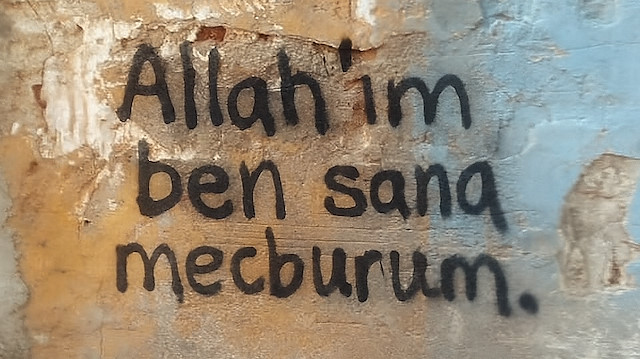 Allah'ım
ben sana
mecburum.